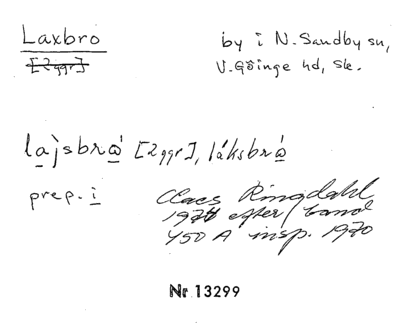 Laxbro
[2ggr]
by i N. Sandby sn,
V. Göinge hd, Sk.
lajsbrå [2ggr], láksbrå
prep. i
Claes Ringdahl
1971 efter band
450 A insp. 1970
Nr 13299